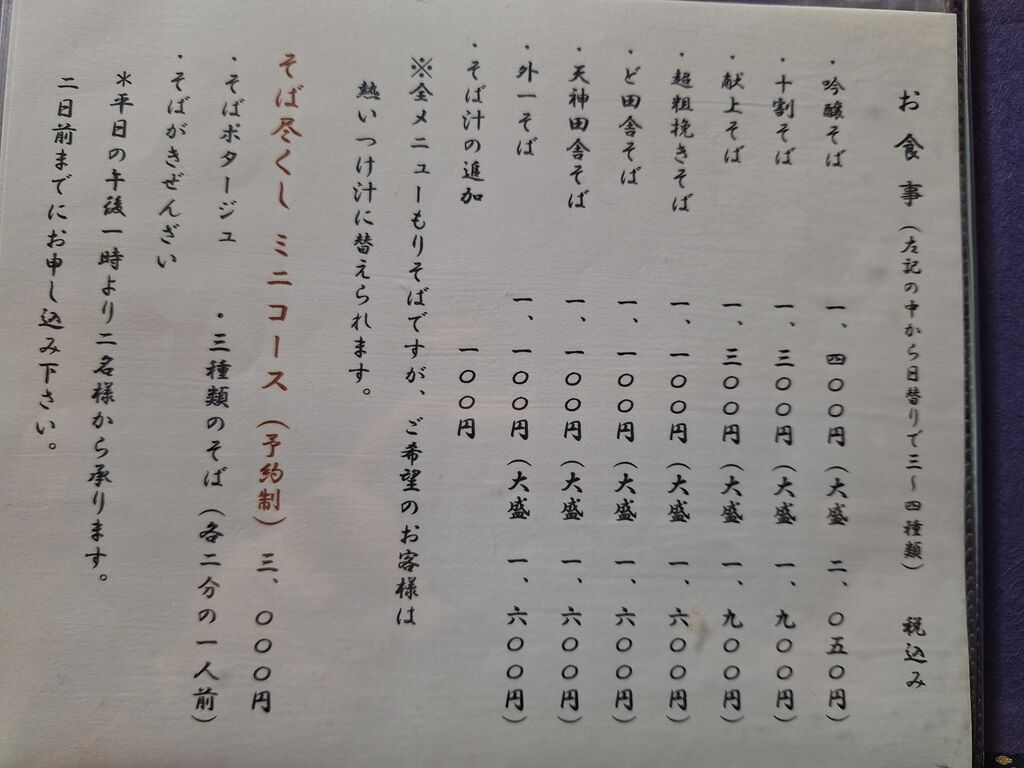 お食事(左記の中から日替りで三~四種類) 税込み
・吟醸そば 一、四〇〇円(大盛 二、〇五〇円)
・十割そば 一、三〇〇円(大盛 一、九〇〇円)
・献上そば 一、三〇〇円(大盛 一、九〇〇円)
・超粗挽きそば 一、一〇〇円(大盛 一、六〇〇円)
・ど田舎そば 一、一〇〇円(大盛 一、六〇〇円)
・天神田舎そば 一、一〇〇円(大盛 一、六〇〇円)
・外一そば 一、一〇〇円(大盛 一、六〇〇円)
・そば汁の追加 一〇〇円
※全メニューもりそばですが、ご希望のお客様は
熱いつけ汁に替えられます。
そば尽くし ミニコース(予約制) 三、〇〇〇円
・そばポタージュ ・三種類のそば(各二分の一人前)
・そばがきぜんざい
*平日の午後一時より二名様から承ります。
二日前までにお申し込み下さい。